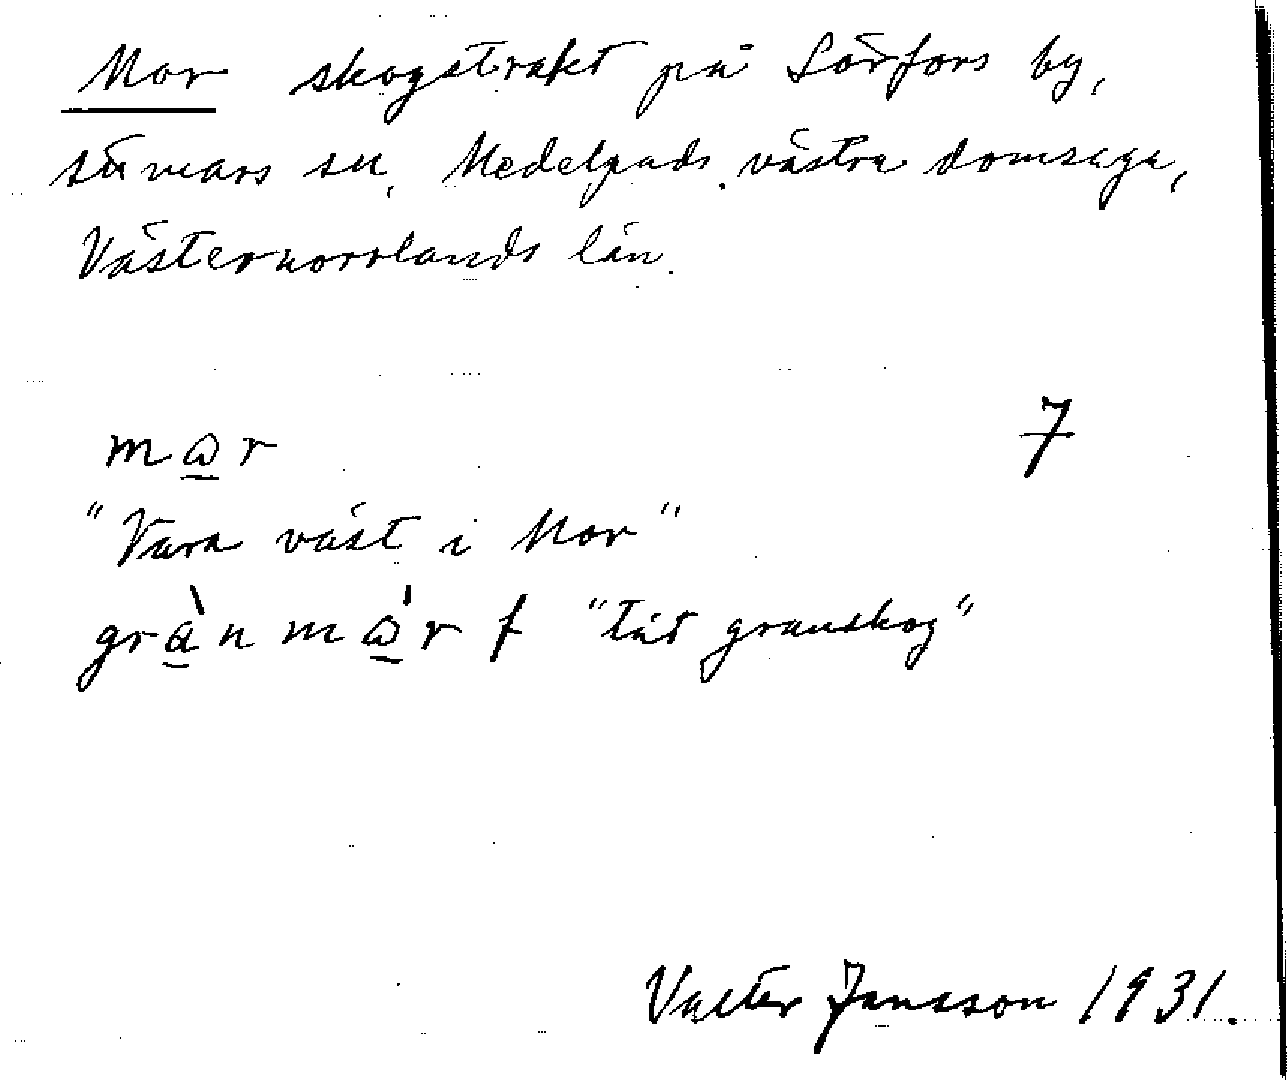 Mor skogstrakt på Sörfors by,
Attmars sn, Medelpads västra domsaga,
Västernorrlands län.
mɷ̲r 7
"Vara väst i Mor"
grà̲n mɷ̲̀r f "tät granskog"
Valter Jansson 1931.